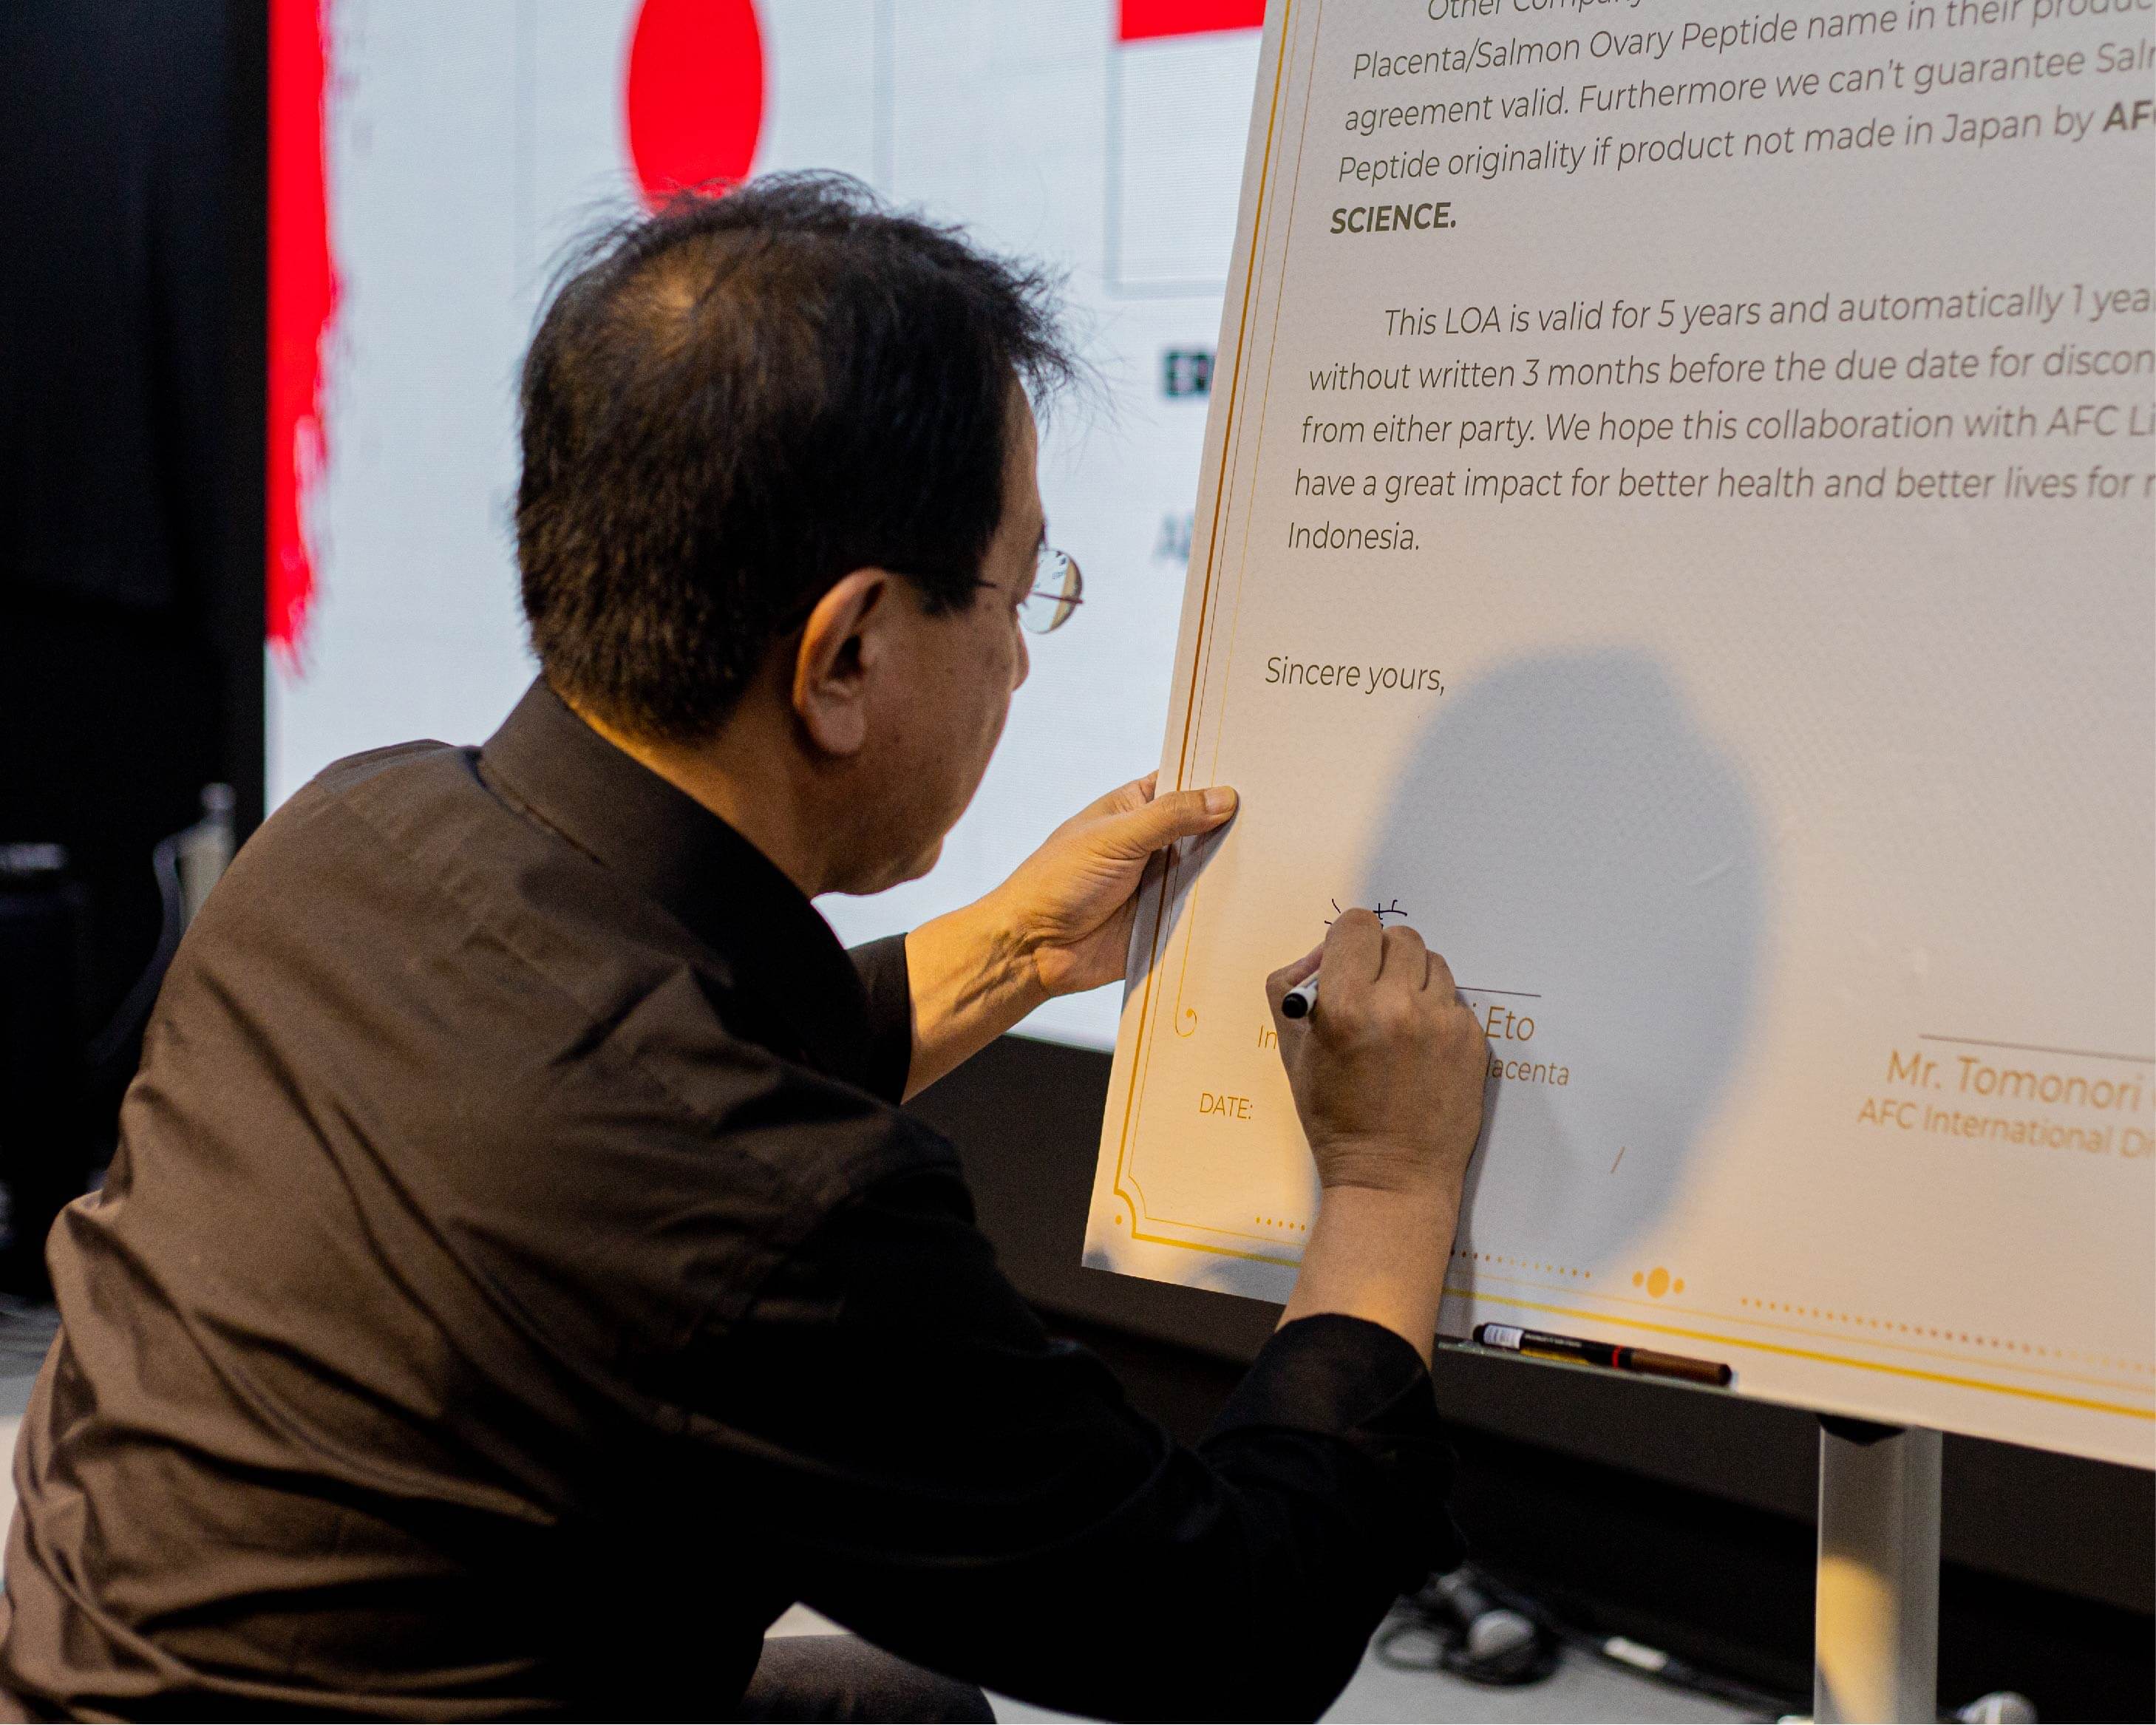 Other Company
Placenta/Salmon Ovary Peptide name in their
agreement valid. Furthermore we can't guarantee
Peptide originality if product not made in Japan by
SCIENCE.
This LOA is valid for 5 years and automatically 1
without written 3 months before the due date for
from either party. We hope this collaboration with AFC
have a great impact for better health and better lives for
Indonesia.
Sincere yours,
Eto
DATE:
/
Mr. Tomonori
AFC International